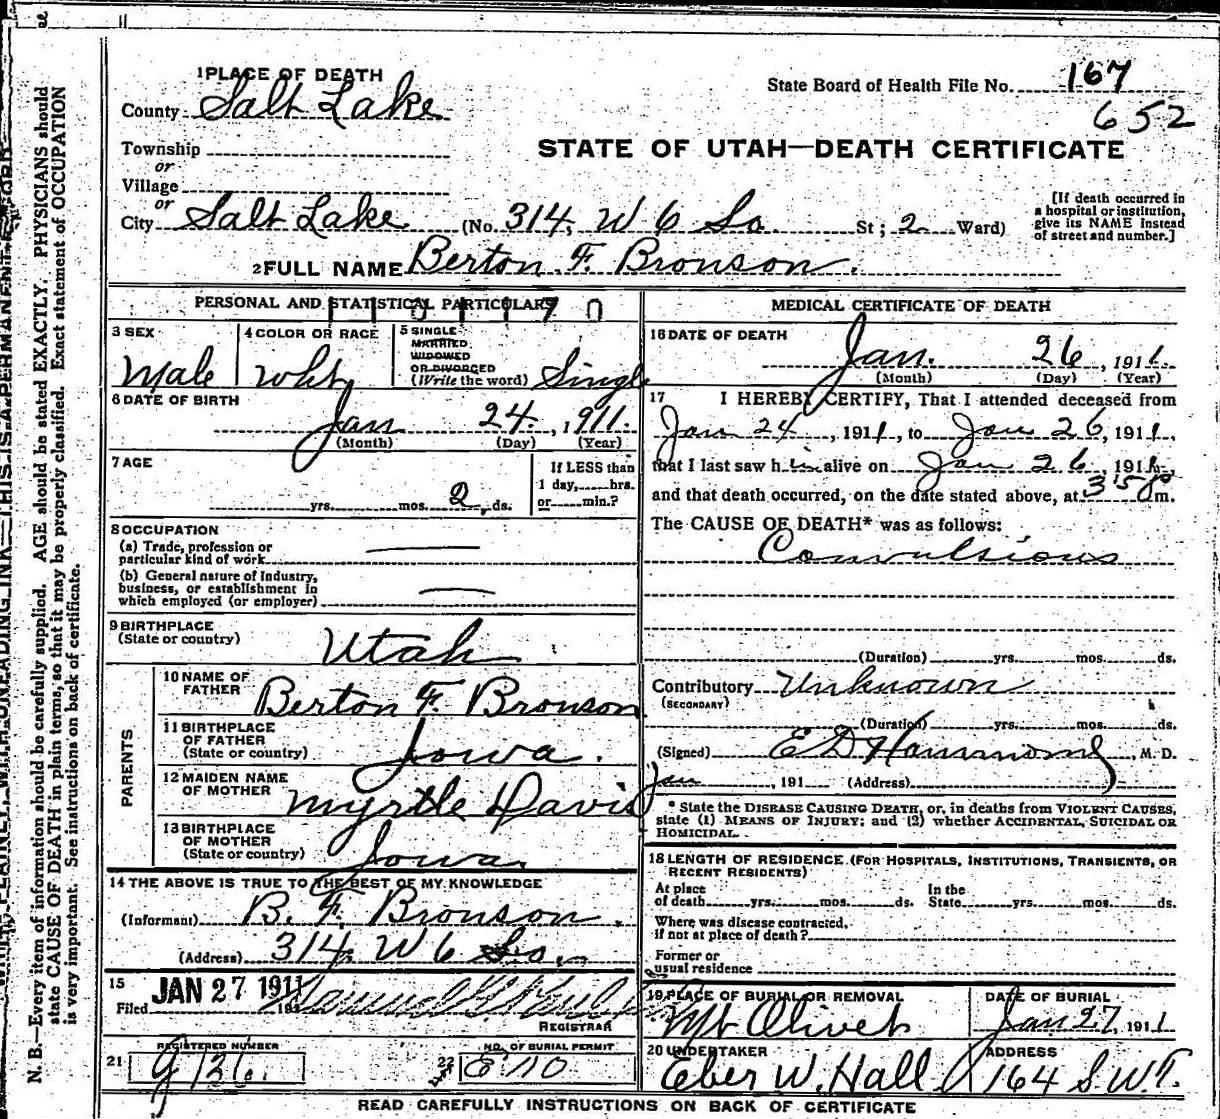 1 PLACE OF DEATH
County Salt Lake
Township
or
Village
or
City Salt Lake (No. 314, W 6 So. St; 2 Ward)
[If death occurred in
a hospital or institution,
give its NAME instead
of street and number.]
State Board of Health File No. 167
652
STATE OF UTAH—DEATH CERTIFICATE
2 FULL NAME Berton F. Bronson.
PERSONAL AND STATISTICAL PARTICULARS
3 SEX
Male
4 COLOR OR RACE
Wht
5 SINGLE
MARRIED
WIDOWED
OR DIVORCED
(Write the word) Single
6 DATE OF BIRTH
Jan 24, 1911.
(Month) (Day) (Year)
7 AGE
yrs. mos. 2 ds.
If LESS than
1 day, hrs.
or min.?
8 OCCUPATION
(a) Trade, profession or
particular kind of work
(b) General nature of Industry,
business, or establishment in
which employed (or employer)
9 BIRTHPLACE
(State or country) Utah
PARENTS
10 NAME OF
FATHER Berton F. Bronson
11 BIRTHPLACE
OF FATHER
(State or country) Iowa.
12 MAIDEN NAME
OF MOTHER Myrtle Davis
13 BIRTHPLACE
OF MOTHER
(State or country) Iowa.
14 THE ABOVE IS TRUE TO THE BEST OF MY KNOWLEDGE
(Informant) B. F. Bronson.
(Address) 314 W 6 So.
15
Filed JAN 27 1911 191
REGISTRAR
REGISTERED NUMBER
21 g 126.
NO. OF BURIAL PERMIT
22 E 110
MEDICAL CERTIFICATE OF DEATH
16 DATE OF DEATH
Jan. 26, 1911.
(Month) (Day) (Year)
17 I HEREBY CERTIFY, That I attended deceased from
Jan 24, 1911, to Jan 26, 1911,
that I last saw him alive on Jan 26, 1911,
and that death occurred, on the date stated above, at 3 15 p m.
The CAUSE OF DEATH* was as follows:
Convulsions
(Duration) yrs. mos. ds.
Contributory Unknown
(SECONDARY)
(Duration) yrs. mos. ds.
(Signed) E D Hammond, M. D.
Jan, 191 (Address)
* State the DISEASE CAUSING DEATH, or, in deaths from VIOLENT CAUSES,
state (1) MEANS OF INJURY; and (2) whether ACCIDENTAL, SUICIDAL OR
HOMICIDAL.
18 LENGTH OF RESIDENCE (FOR HOSPITALS, INSTITUTIONS, TRANSIENTS, OR
RECENT RESIDENTS)
At place
of death yrs. mos. ds.
In the
State yrs. mos. ds.
Where was disease contracted,
if not at place of death?
Former or
usual residence
19 PLACE OF BURIAL OR REMOVAL
Mt Olivet
DATE OF BURIAL
Jan 27, 1911
20 UNDERTAKER
Eber W. Hall
ADDRESS
164 S. W T.
READ CAREFULLY INSTRUCTIONS ON BACK OF CERTIFICATE
WRITE PLAINLY, WITH UNFADING INK—THIS IS A PERMANENT RECORD
N. B.—Every item of information should be carefully supplied. AGE should be stated EXACTLY. PHYSICIANS should
state CAUSE OF DEATH in plain terms, so that it may be properly classified. Exact statement of OCCUPATION
is very important. See instructions on back of certificate.